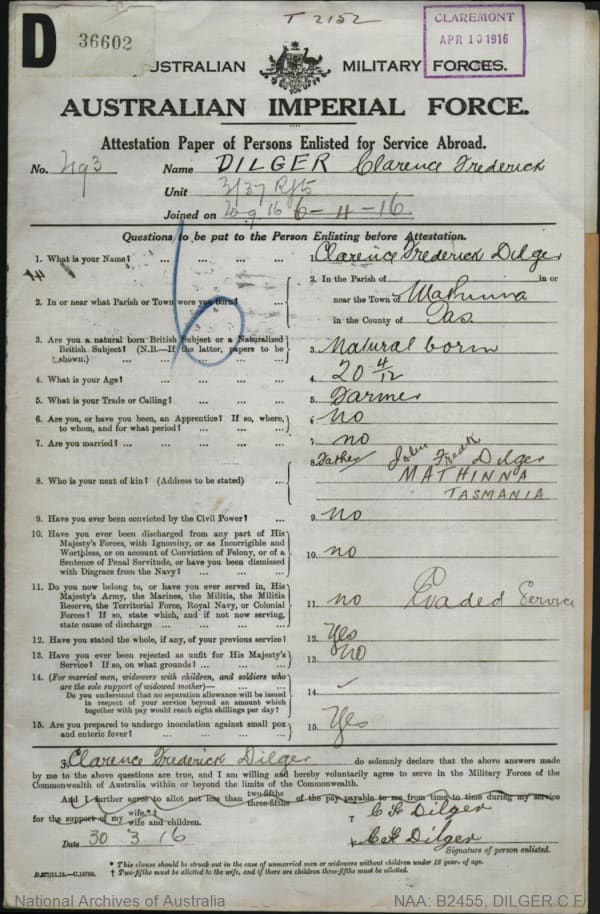 T 2152
D 36602
CLAREMONT
APR 10 1916
AUSTRALIAN MILITARY FORCES.
AUSTRALIAN IMPERIAL FORCE.
Attestation Paper of Persons Enlisted for Service Abroad.
No. Name DILGER Clarence Frederick
Unit 3/37 Rfts
Joined on 6-4-16
Questions to be put to the Person Enlisting before Attestation.
1. What is your Name? ... ... ... ... 1. Clarence Frederick Dilger
2. In or near what Parish or Town were you born? ... 2. In the Parish of in or
near the Town of Mathinna
in the County of Tas.
3. Are you a natural born British Subject or a Naturalized
British Subject? (N.B.—If the latter, papers to be
shown.) ... ... ... ... 3. Natural born
4. What is your Age? ... ... ... ... 4. 20 4/12
5. What is your Trade or Calling? ... ... ... 5. Farmer
6. Are you, or have you been, an Apprentice? If so, where,
to whom, and for what period? ... ... ... 6. no
7. Are you married? ... ... ... ... 7. no
8. Who is your next of kin? (Address to be stated) ... 8. Father John Fredk Dilger
MATHINNA
TASMANIA
9. Have you ever been convicted by the Civil Power? ... 9. no
10. Have you ever been discharged from any part of His
Majesty's Forces, with Ignominy, or as Incorrigible and
Worthless, or on account of Conviction of Felony, or of a
Sentence of Penal Servitude, or have you been dismissed
with Disgrace from the Navy? ... ... ... 10. no
11. Do you now belong to, or have you ever served in, His
Majesty's Army, the Marines, the Militia, the Militia
Reserve, the Territorial Force, Royal Navy, or Colonial
Forces? If so, state which, and if not now serving,
state cause of discharge ... ... ... ... 11. no Evaded Service
12. Have you stated the whole, if any, of your previous service? 12. Yes
13. Have you ever been rejected as unfit for His Majesty's
Service? If so, on what grounds? ... ... ... 13. No
14. (For married men, widowers with children, and soldiers who
are the sole support of widowed mother)—
Do you understand that no separation allowance will be issued
in respect of your service beyond an amount which
together with pay would reach eight shillings per day? 14.
15. Are you prepared to undergo inoculation against small pox
and enteric fever? ... ... ... ... 15. Yes
I, Clarence Frederick Dilger do solemnly declare that the above answers made
by me to the above questions are true, and I am willing and hereby voluntarily agree to serve in the Military Forces of the
Commonwealth of Australia within or beyond the limits of the Commonwealth.
And I further agree to allot not less than two-fifths three-fifths of the pay payable to me from time to time during my service
for the support of my wife.*† wife and children.
C F Dilger
Date 30 3 16
C F Dilger
Signature of person enlisted.
* This clause should be struck out in the case of unmarried men or widowers without children under 18 year. of age.
† Two-fifths must be allotted to the wife, and if there are children three-fifths must be allotted.
National Archives of Australia
NAA: B2455, DILGER C F